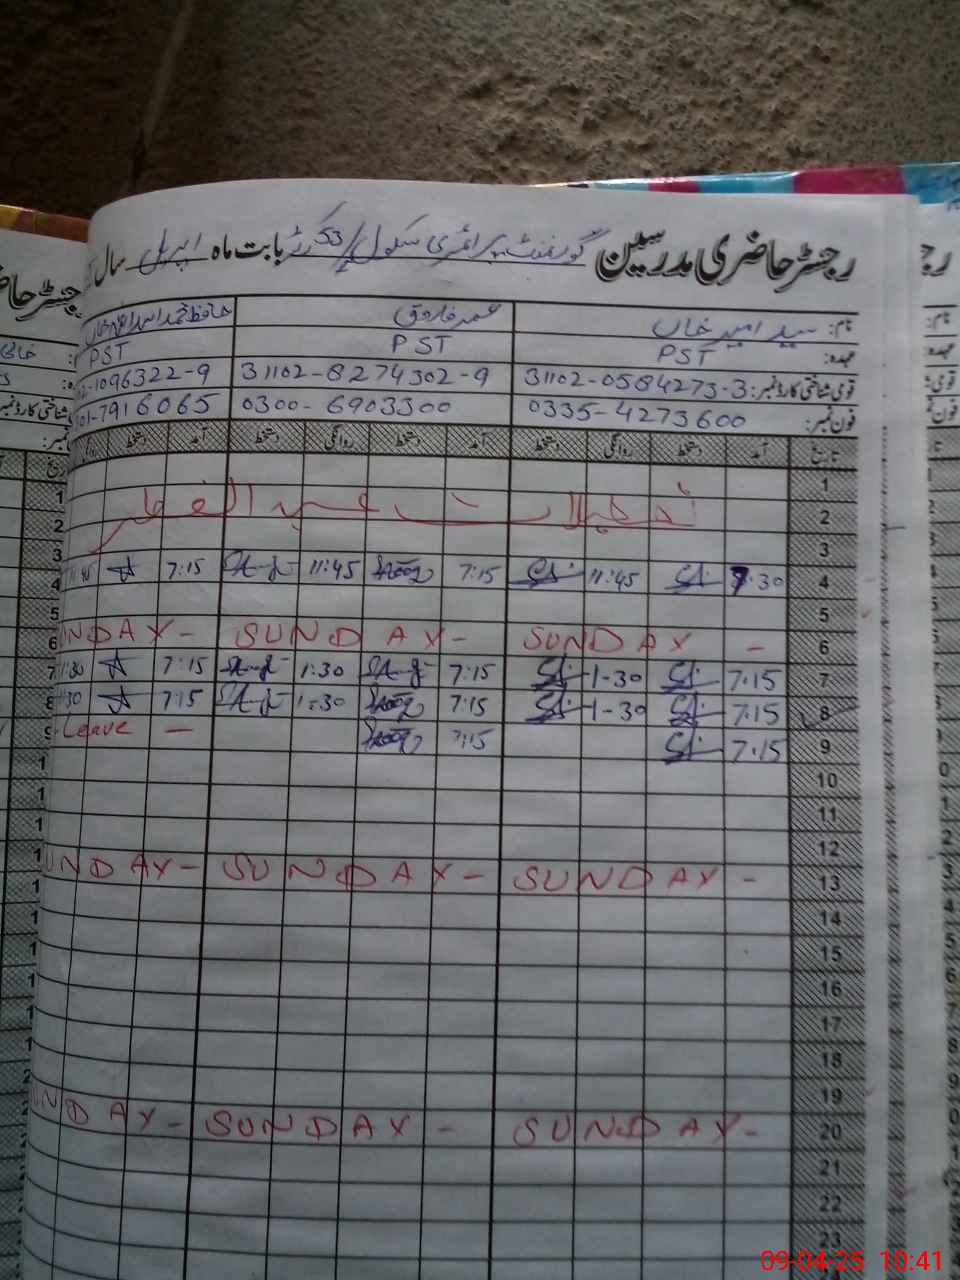 رجسٹر حاضری مدرسین گورنمنٹ پرائمری سکول 53 بابت ماہ اپریل سال
نام: سید امیر خان عمر فاروق حافظ محمد
عہدہ: PST PST PST
قومی شناختی کارڈ نمبر: 31102-0584273-3 31102-8274302-9 1096322-9
فون نمبر: 0335-4273600 0300-6903300 7916065
تاریخ آمد دستخط روانگی دستخط آمد دستخط روانگی دستخط آمد دستخط
1
2 تعطیلات عید الفطر
3
4 7:30 11:45 7:15 11:45 7:15 11:45
5
6 SUNDAY - SUNDAY - UNDAY -
7 7.15 1-30 7:15 1:30 7:15 1:30
8 7.15 1-30 7:15 1:30 7:15 1:30
9 7.15 7:15 Leave —
10
11
12
13 SUNDAY - SUNDAY - UNDAY -
14
15
16
17
18
19
20 SUNDAY - SUNDAY - UNDAY -
21
22
23
09-04-25 10:41